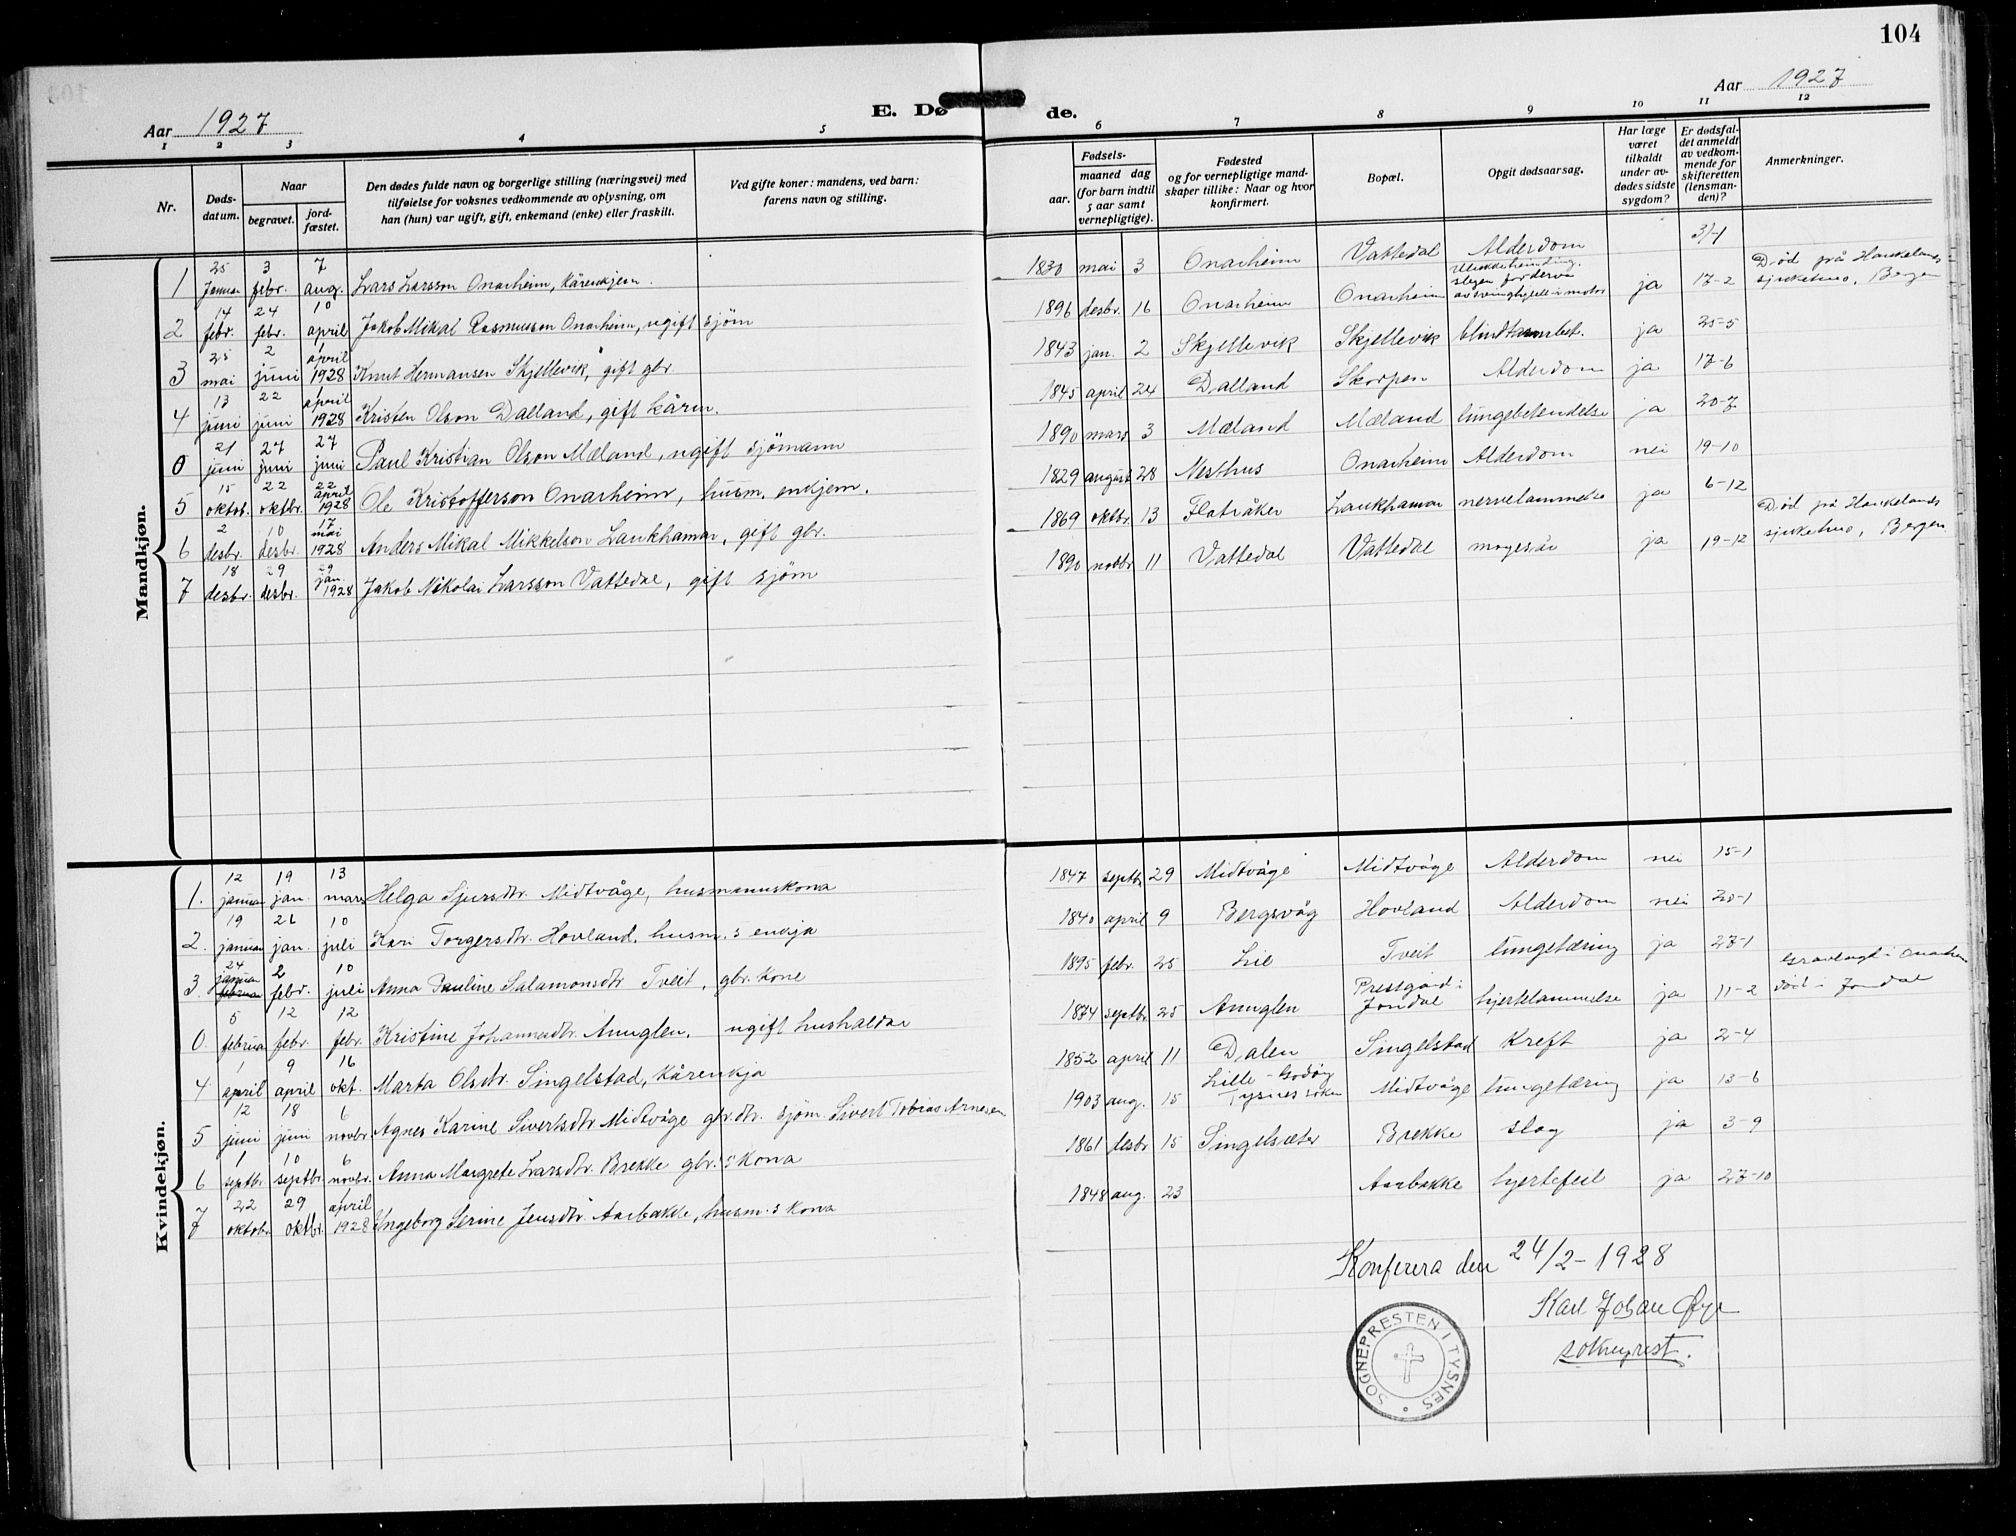 104
Aar 1927
E. Dø de.
Aar 1927
1 2 3 4 5 6 7 8 9 10 11 12
Nr.
Døds-datum.
Naar
begravet.
jord-fæstet.
Den dødes fulde navn og borgerlige stilling (næringsvei) med
tilføielse for voksnes vedkommende av oplysning, om
han (hun) var ugift, gift, enkemand (enke) eller fraskilt.
Ved gifte koner: mandens, ved barn:
farens navn og stilling.
Fødsels-
aar.
maaned dag
(for barn indtil
5 aar samt
vernepligtige).
Fødested
og for vernepligtige mand-
skaper tillike: Naar og hvor
konfirmert.
Bopæl.
Opgit dødsaarsag.
Har læge
været
tilkaldt
under av-
dødes sidste
sygdom?
Er dødsfal-
det anmeldt
av vedkom-
mende for
skifteretten
(lensman-
den)?
Anmerkninger.
Mandkjøn.
1 25 Januar 3 febr. 7 aug. Lars Larsson Onarheim, kårenkjem. 1830 mai 3 Onarheim Vattedal Alderdom 3/1
2 14 febr. 24 febr. 10 april Jakob Mikal Rasmusson Onarheim, ugift sjøm 1896 desbr. 16 Onarheim Onarheim ja 17-2 Død på Haukelands sjukehus, Bergen
3 25 mai 2 juni 1 april 1928 Knut Hermansen Skjellevik, gift gbr. 1843 jan. 2 Skjellevik Skjellevik ja 25-5
4 13 juni 22 juni 1 april 1928 Kristen Olson Dalland, gift kårm. 1845 april 24 Dalland Skorpen Alderdom ja 17-6
0 21 juni 27 juni 27 juni Paul Kristian Olson Mæland, ugift sjömann 1890 mars 3 Mæland Mæland lungebetendelse ja 20-7
5 15 oktob. 22 oktbr. 22 april 1928 Ole Kristofferson Onarheim, husm. enkjem. 1829 august 28 Nesthus Onarheim Alderdom nei 19-10
6 2 desbr. 10 desbr. 17 mai 1928 Anders Mikal Mikkelson Laukhamar, gift gbr. 1869 oktbr. 13 Flatråker Laukhamar nervelammelse ja 6-12
7 18 desbr. 29 desbr. 29 jan. 1928 Jakob Nikolai Larsson Vattedal, gift sjöm 1890 novbr 11 Vattedal Vattedal magesår ja 19-12 Död på Haukelands sjukehus, Bergen
Kvindekjøn.
1. 12 januar 19 jan. 13 mars Helga Sjursdtr. Midtvåge, husmannskona 1847 septbr 29 Midtvåge Midtvåge Alderdom nei 15-1
2. 19 januar 26 jan. 10 juli Kari Torgersdtr. Hovland, husm.s enkja 1840 april 9 Bergsvåg Hovland Alderdom nei 20-1
3 24 januar februar 2 febr. 10 juli Anna Pauline Salamonsdtr Tveit, gbr. kone 1895 febr. 25 Lie Tveit lungetæring ja 27-1
0. 5 februar 12 febr. 12 febr. Kristine Johannesdtr. Anuglen, ugift hushaldar 1874 septbr 25 Anuglen Prestgård i Jondal hjertelammelse ja 11-2 Gravlagt i Onarheim död i Jondal
4 1 april 9 april 16 okt. Marta Olsdtr. Singelstad, kårenkja 1852 april 11 Dalen Singelstad kreft ja 2-4
5 12 juni 18 juni 6 novbr. Agnes Karine Sivertsdtr Midtvåge gbr.dtr. sjöm. Sivert Tobias Arnesen 1903 aug. 15 Lille-Godöy Tysnes sokn Midtvåge lungetæring ja 13-6
6 1 septbr 10 septbr 6 novbr. Anna Margrete Larsdtr. Brekke gbr.s kona 1861 desbr 15 Singelsæter Brekke slag ja 3-9
7 22 oktobr. 29 oktbr. april 1928 Ingeborg Serine Jensdtr. Aarbakke, husm.s kona 1848 aug. 23 Aarbakke hjertefeil ja 27-10
Konferera den 24/2-1928
Karl Johan Øye
sokneprest.
SOGNEPRESTEN I TYSNES